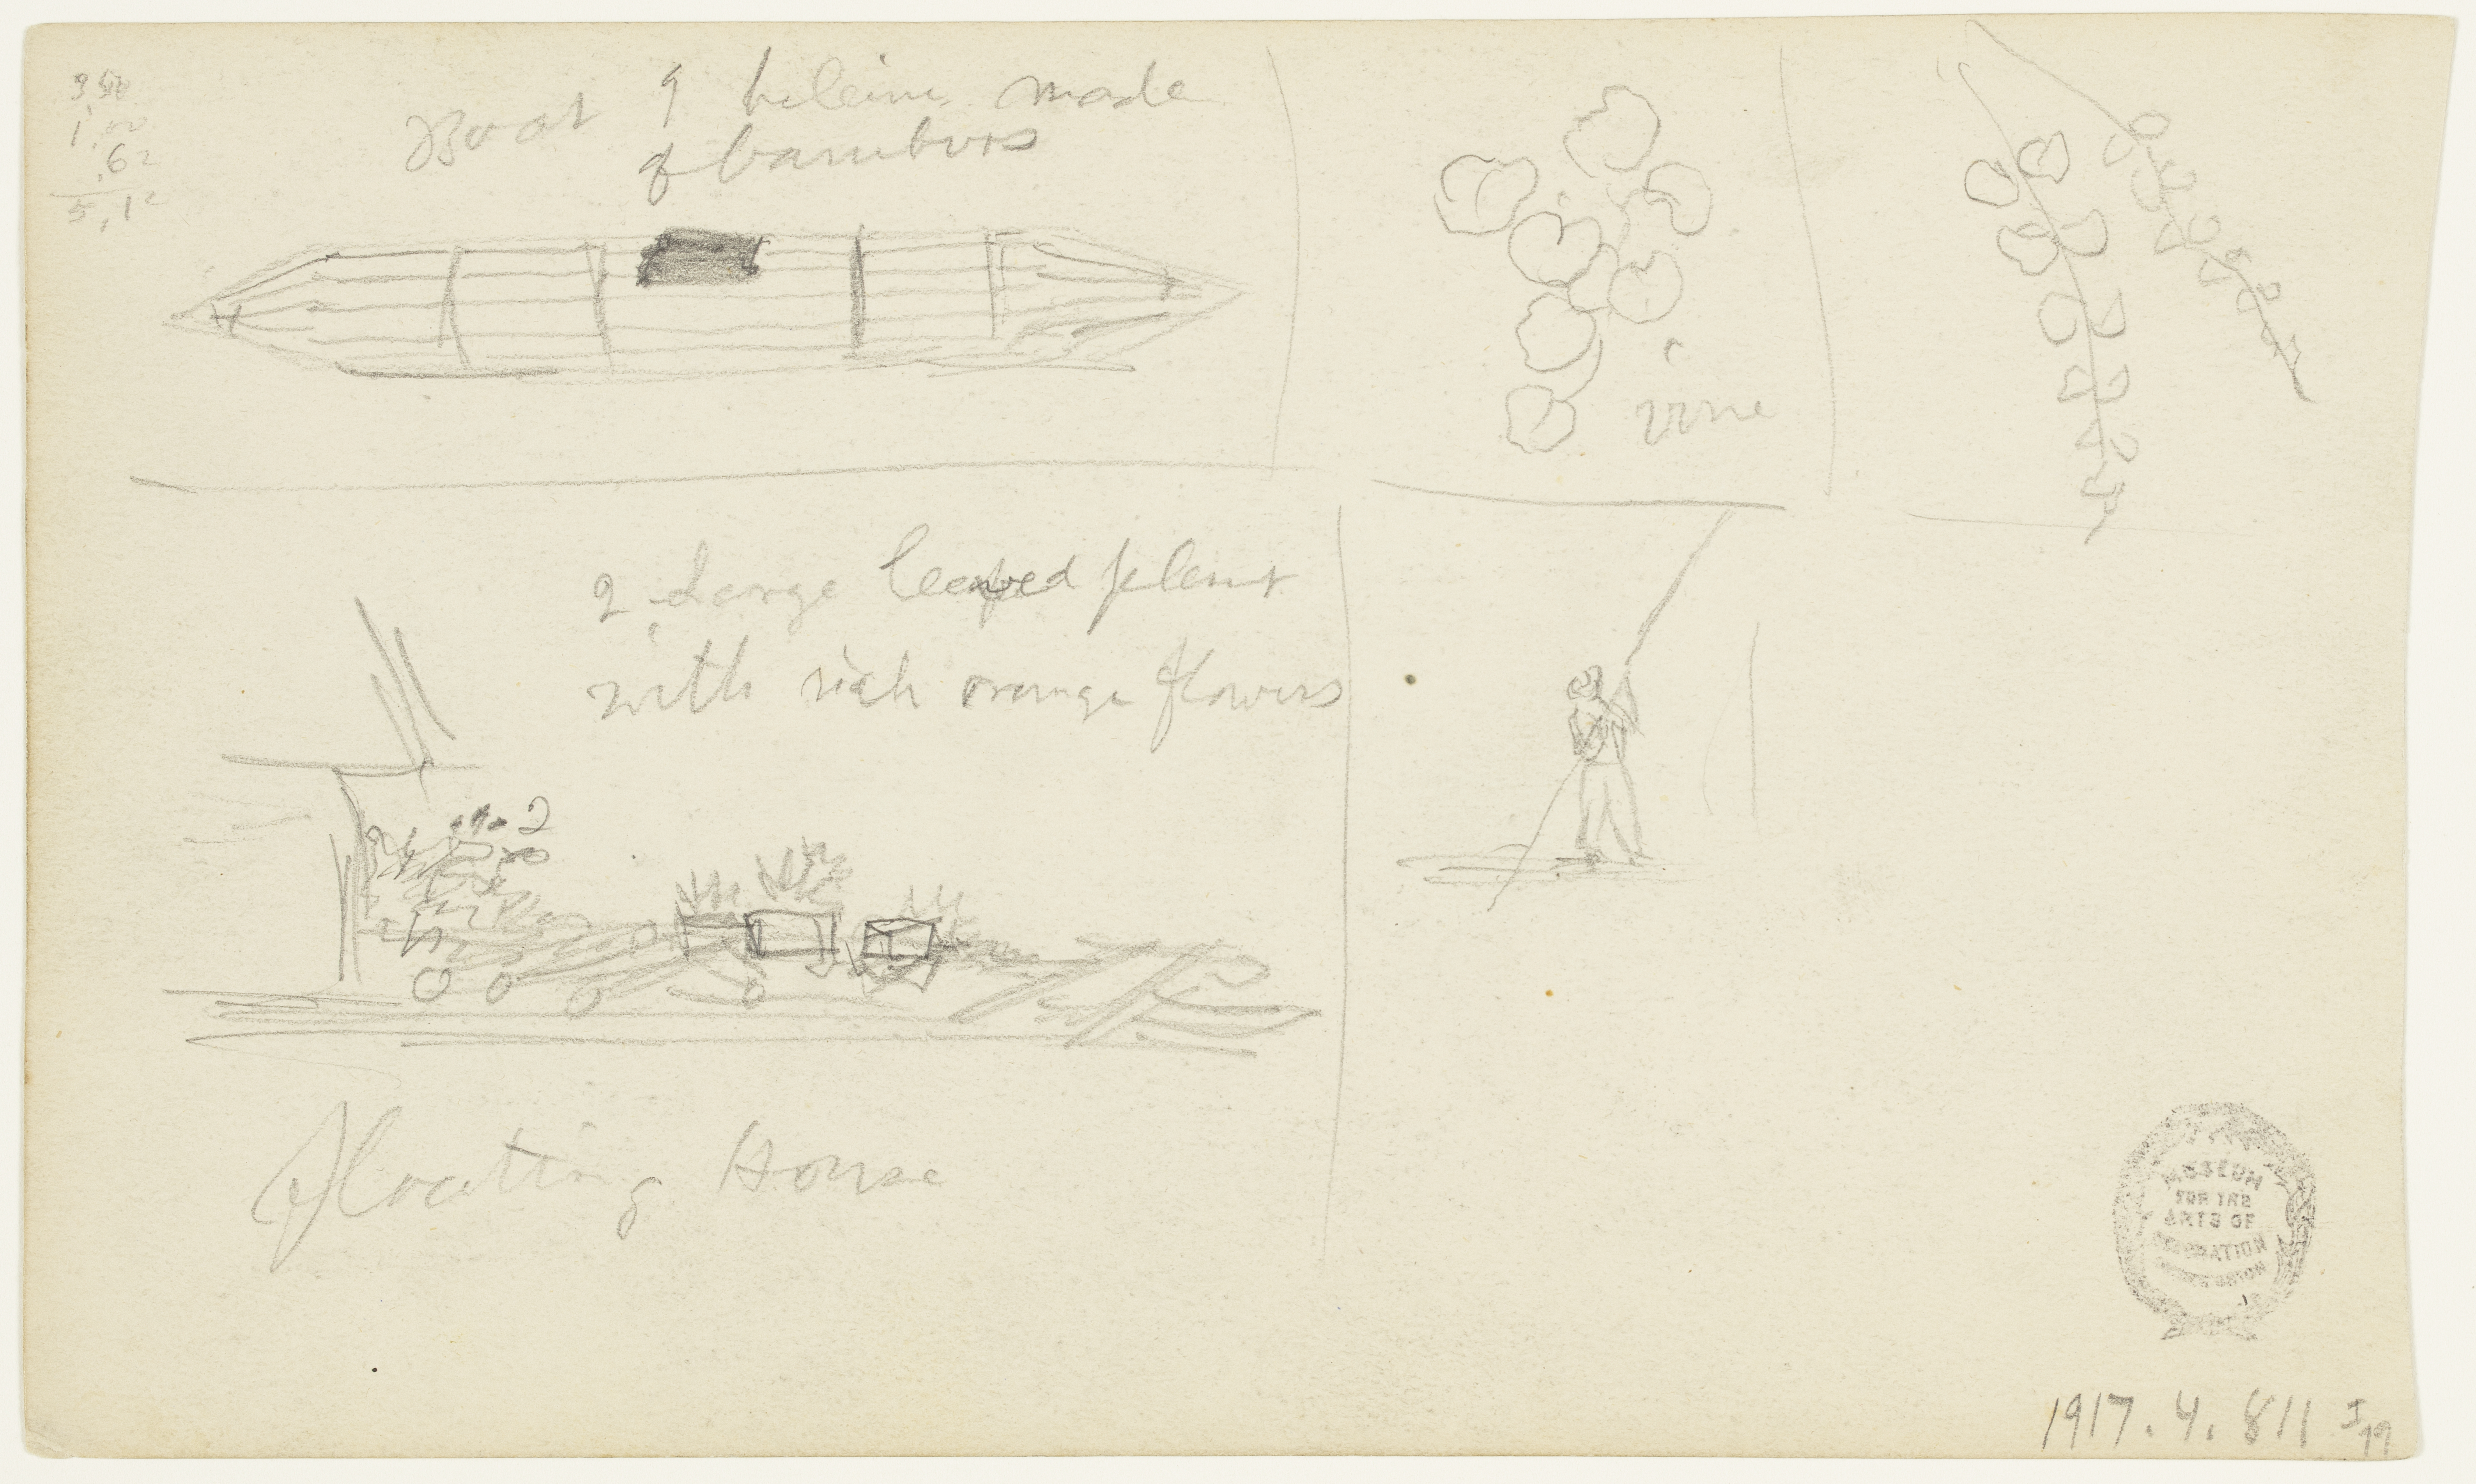 3.50
1.00
.62
5.12
Boat of made
of bamboos
vine
2. Large leaved plant
with rich orange flowers
2
Floating House
MUSEUM
FOR THE
ARTS OF
DECORATION
COOPER UNION
1917.4.811